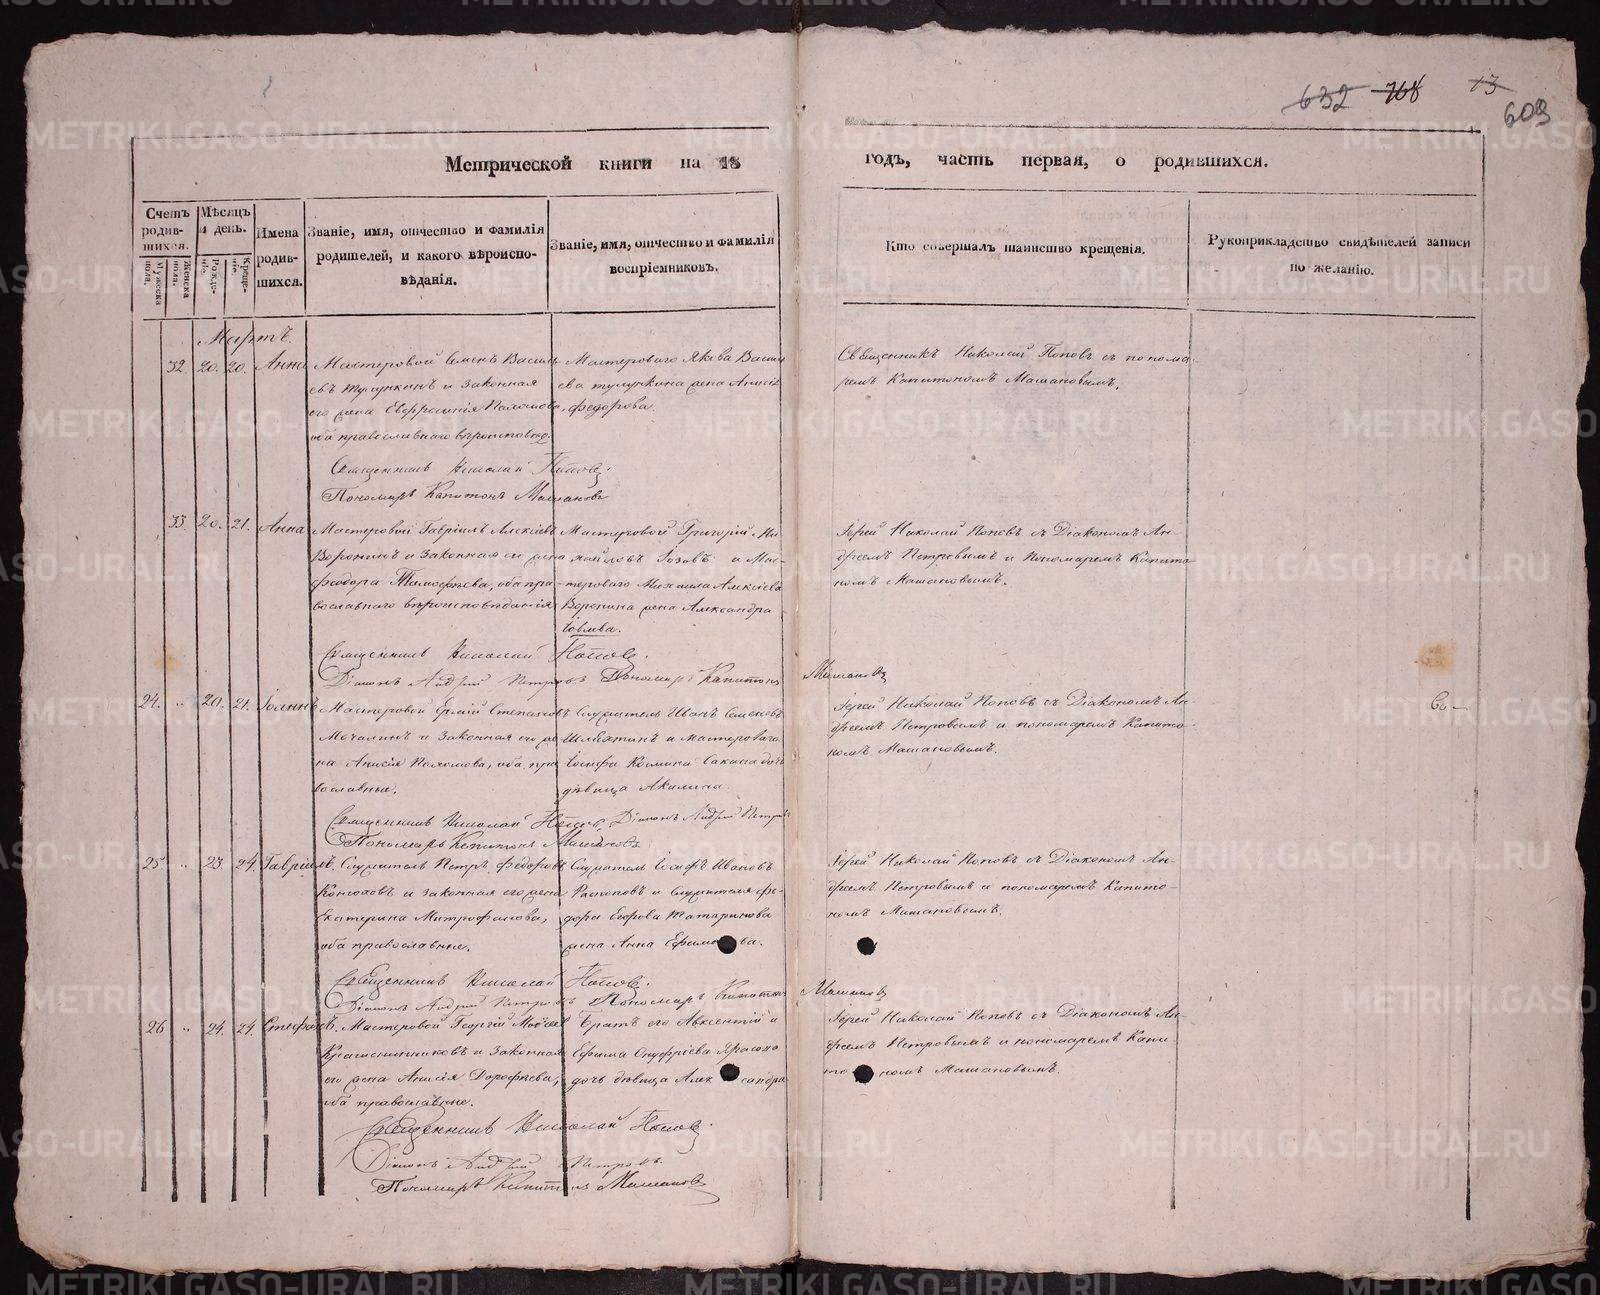 632 768 13
609
Метрической книги на 18 годъ, часть первая, о родившихся.
Счетъ родившихся.
Мужеска пола.
Женска пола.
Мѣсяцъ и день.
Рожденіе.
Крещеніе.
Имена родившихся.
Званіе, имя, отчество и фамилія родителей, и какого вѣроисповѣданія.
Званіе, имя, отчество и фамилія воспріемниковъ.
Кто совершалъ таинство крещенія.
Рукоприкладство свидѣтелей записи по желанію.
Мартъ
32 20. 20. Анна
Мастеровой Семенъ Василь
евъ и законная
его жена Евфросинія
оба православнаго вѣроисповѣд.
Мастероваго Якова Васил
ева жена
Федорова.
Священникъ Николай Поповъ съ понома-
ремъ Капитономъ Машановымъ.
Священникъ Николай Поповъ.
Пономарь Капитонъ Машановъ
33 20. 21. Анна
Мастеровой Гавріилъ Алексѣевъ
Воронинъ и законная его жена
Феодора Тимофѣева, оба пра-
вославнаго вѣроисповѣданія
Мастеровой Григорій Ми-
хайловъ и Мас-
тероваго Михаила Алексѣева
Воронина жена Александра
Іовлева.
Іерей Николай Поповъ съ Діакономъ Ан-
дреемъ Петровымъ и Пономаремъ Капито
номъ Машановымъ.
Священникъ Николай Поповъ.
Діаконъ Андрей Петровъ Пономарь Капитонъ Машановъ
24. " 20. 21. Іоаннъ
Мастеровой Ермій Степановъ
Мочалинъ и законная его же
на Анисія оба пра
вославные.
Служитель Иванъ Семеновъ
и мастероваго
Іосифа дочь
дѣвица Акилина
Іерей Николай Поповъ съ Діакономъ Ан-
дреемъ Петровымъ и пономаремъ Капито-
номъ Машановымъ.
Священникъ Николай Поповъ. Діаконъ Андрей Петровъ
Пономарь Капитонъ Машановъ
25. " 23. 24. Гавріилъ.
Служитель Петръ Федоровъ
Конюховъ и законная его жена
Екатерина Митрофанова,
оба православные.
Служитель Іосифъ Ивановъ
и служителя Фе-
дора Егорова Татаринова
жена Анна Ефимова.
Іерей Николай Поповъ съ Діакономъ Ан-
дреемъ Петровымъ и пономаремъ Капито-
номъ Машановымъ.
Священникъ Николай Поповъ.
Діаконъ Андрей Петровъ Пономарь Капитонъ Машановъ
26 " 24. 24. Стефанъ.
Мастеровой Георгій Моѵсеевъ
Крашенинниковъ и законная
его жена Анисія Дорофѣева,
оба православные.
Братъ его Авксентій и
Ефима Онуфріева
дочь дѣвица Александра
Іерей Николай Поповъ съ Діакономъ Ан-
дреемъ Петровымъ и пономаремъ Капи-
тономъ Машановымъ.
Священникъ Николай Поповъ.
Діаконъ Андрей Петровъ.
Пономарь Капитонъ Машановъ
METRIKI.GASO-URAL.RU